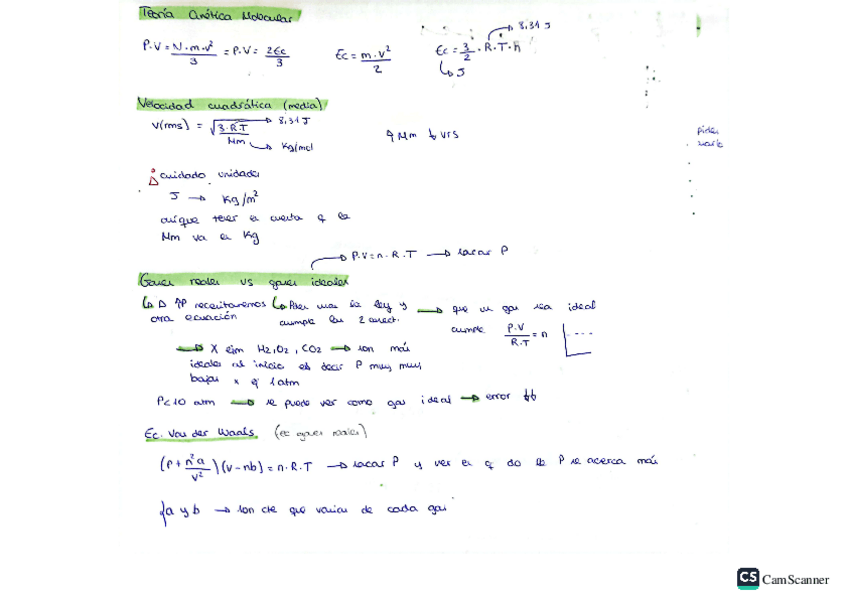 Teoría Cinética Molecular
8,31 J
P·V = N·m·v² / 3 = P·V = 2Ec / 3    Ec = m·v² / 2    Ec = 3/2 · R·T·n
↳ J
Velocidad cuadrática (media)
v(rms) = √(3·R·T / Mm) → 8,31 J    ↑ Mm ↓ vrs
Kg/mol
cuidado unidades
J → Kg/m²
Mm va en Kg
P·V = n·R·T → sacar P
Gases reales vs gases ideales
↳ Δ ↑P necesitaremos ↳ Pasan la ley y → que un gas sea ideal
otra ecuación    cumple las 2 caract.    cumple P·V / R·T = n
→ X ejm H2, O2, CO2 → son más
ideales al inicio es decir P muy, muy,
bajas x q 1 atm
P<10 atm → se puede ver como gas ideal → error ↓↓
Ec. Van der Waals. (ec gases reales)
(P + n²a / v²)(v - nb) = n·R·T → sacar P y ver en q do la P se acerca más
{a y b → son cte que varían de cada gas
CS CamScanner